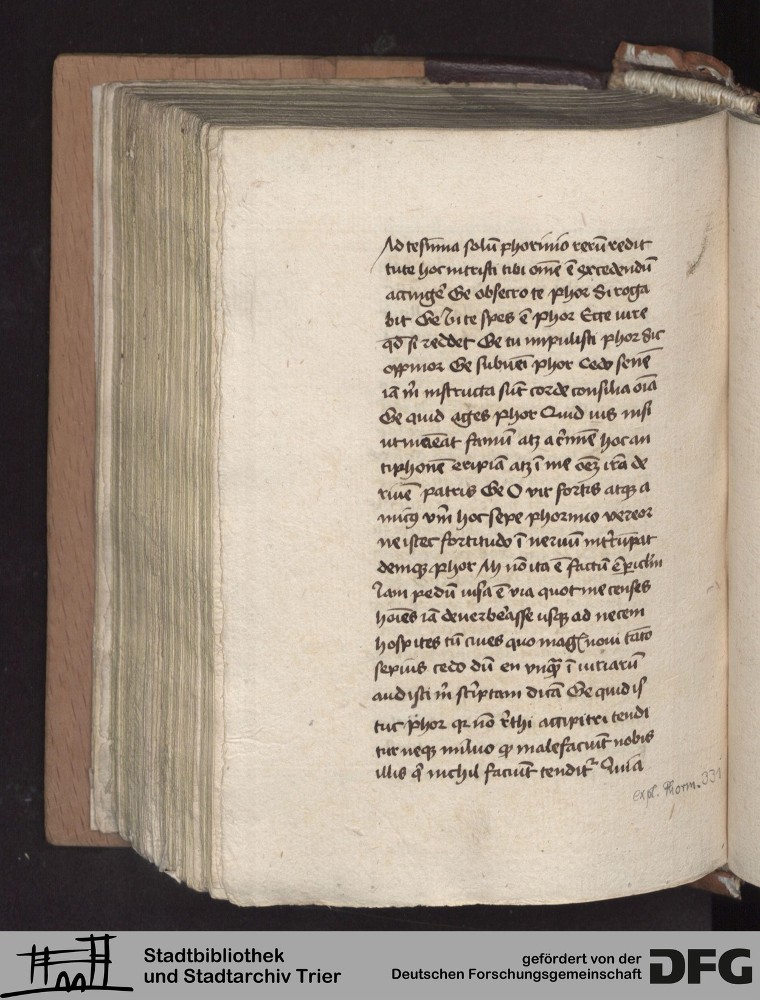 Ad te sūma solū phormio rerū redit
tute hoc intristi tibi omē ē exedendū
accinge Ge obsecro te Phor Si roga
bit Ge In te spes ē Phor Ecce uire
qd si reddet Ge tu impulisti phor Sic
oppinor Ge Subueī phor Cedo senē
iā m̄ instructa sūt corde consilia oīa
Ge quid ages Phor Quid uis nisi
ut maneat fāniū atq a crīmē hoc an
tiphonē eripiā atq ī me oēz irā de
riuē patris Ge O vir fortis atqz a
micus vm̄ hoc sepe phormio vereor
ne istec fortitudo ī neruū ērūpat
demqz phor Ah nō ita ē factū ē periclm
Iam pedū uisa ē via quot me censes
hoīes iā deuerberasse usqz ad necem
hospites tū ciues quo mag noui tāto
sepius cedo dū en vnqz ī iuriarū
audisti m̄ scriptam dicā Ge quid is
tuc phor qr nō rethi accipitri tendi
tur neqz miluo q malefaciūt nobis
illis q nichil faciūt tendit Quia
expl. Phorm. 331
Stadtbibliothek
und Stadtarchiv Trier
gefördert von der
Deutschen Forschungsgemeinschaft
DFG